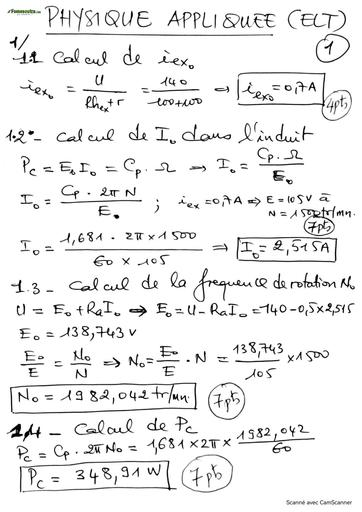 Fomesoutra.com
PHYSIQUE APPLIQUEE (ELT)
1
1/
1.1 Calcul de iex₀
iex₀ = U / (Rhex + r) = 140 / (100+100) => iex₀ = 0,7A
4pts
1.2°- Calcul de I₀ dans l'induit
Pc = E₀ I₀ = Cp . Ω => I₀ = Cp . Ω / E₀
I₀ = Cp . 2π N / E₀ ; iex = 0,7A => E = 105V à
N = 1500tr/mn.
7pts
I₀ = 1,681 . 2π x 1500 / 60 x 105 => I₀ = 2,515A
1.3 - Calcul de la frequence de rotation N₀
U = E₀ + RaI₀ => E₀ = U - RaI₀ = 140 - 0,5 x 2,515
E₀ = 138,743 V
E₀/E = N₀/N => N₀ = E₀/E . N = 138,743/105 x 1500
N₀ = 1982,042 tr/mn.
7pts
1.4 - Calcul de Pc
Pc = Cp . 2π N₀ = 1,681 x 2π x 1982,042/60
Pc = 348,91 W
7pts
Scanné avec CamScanner